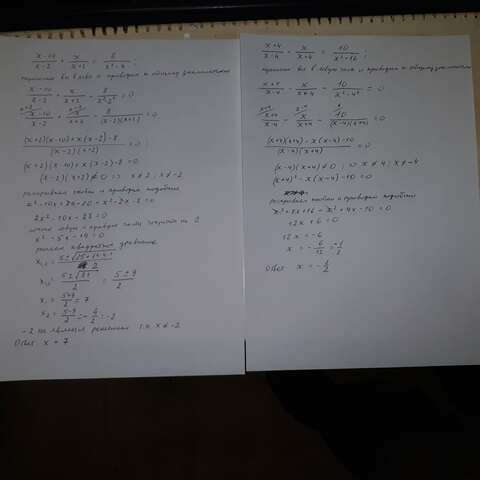 x-10/x-2 + x/x+2 = 8/x²-4 ;
x-10/x-2 + x/x+2 - 8/x²-2² = 0
x-10/x-2 + x/x+2 - 8/(x-2)(x+2) = 0
(x+2)(x-10)+x(x-2)-8/(x-2)(x+2) = 0 ;
(x+2)(x-10)+x(x-2)-8=0
(x-2)(x+2)≠0 => x≠2; x≠-2
раскрываем скобки и приводим подобные
2x²-10x-28=0
решаем квадратное уравнение
x₁ = 5+9/2 = 7
x₂ = 5-9/2 = -4/2 = -2
-2 не является решением т.к x≠-2
Ответ x = 7
x+4/x-4 - x/x+4 = 10/x²-16 ;
переносим все в левую часть и приводим к общему знаменателю
x+4/x-4 - x/x+4 - 10/x²-4² = 0
x+4/x-4 - x/x+4 - 10/(x-4)(x+4) = 0
(x+4)(x+4)-x(x-4)-10/(x-4)(x+4) = 0
(x-4)(x+4)≠0 ; => x≠4; x≠-4
(x+4)²-x(x-4)-10=0
раскрываем скобки и приводим подобные
x²+8x+16-x²+4x-10=0
12x+6=0
12x=-6
x = -6/12 = -1/2
Ответ x = -1/2